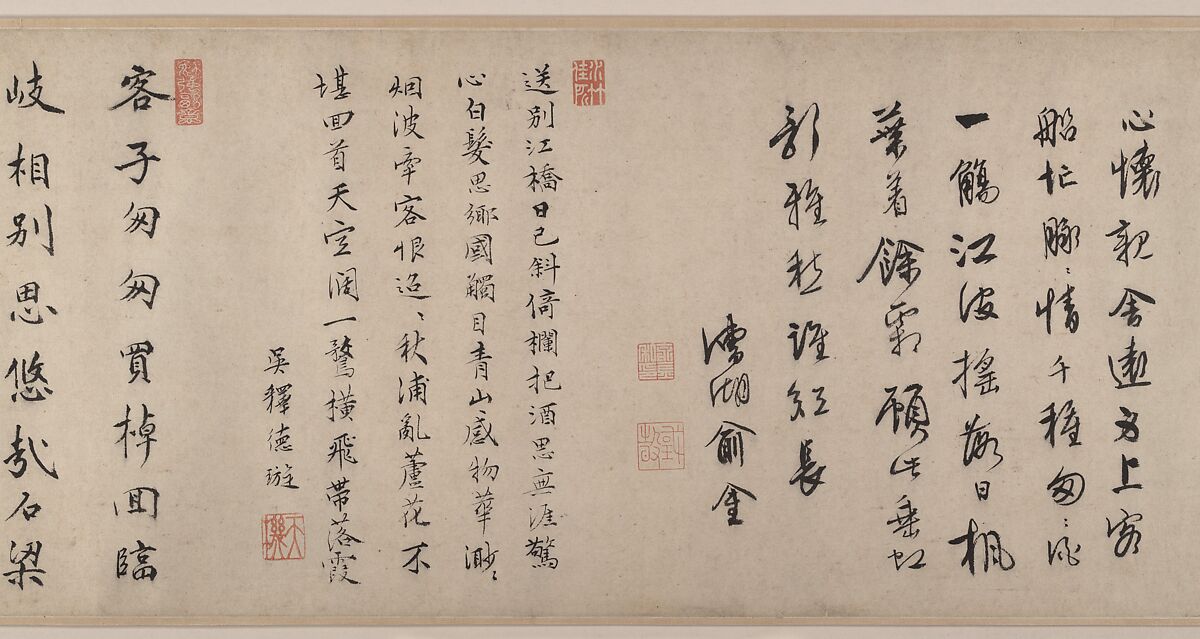 心懷親舍遠为上客
船忙脉〻情千種匆〻酒
一觴江波搖落日楓
葉着餘霜顧此垂虹
影離愁誰短長
濡湖俞金
送別江橋日已斜倚欄把酒思無涯驚
心白髮思鄉國觸目青山感物華渺〻
烟波牽客恨迢〻秋浦亂蘆花不
堪回首天空闊一鶩橫飛帶落霞
吳釋德璇
天機
客子匆匆買棹回臨
岐相別思悠哉石梁